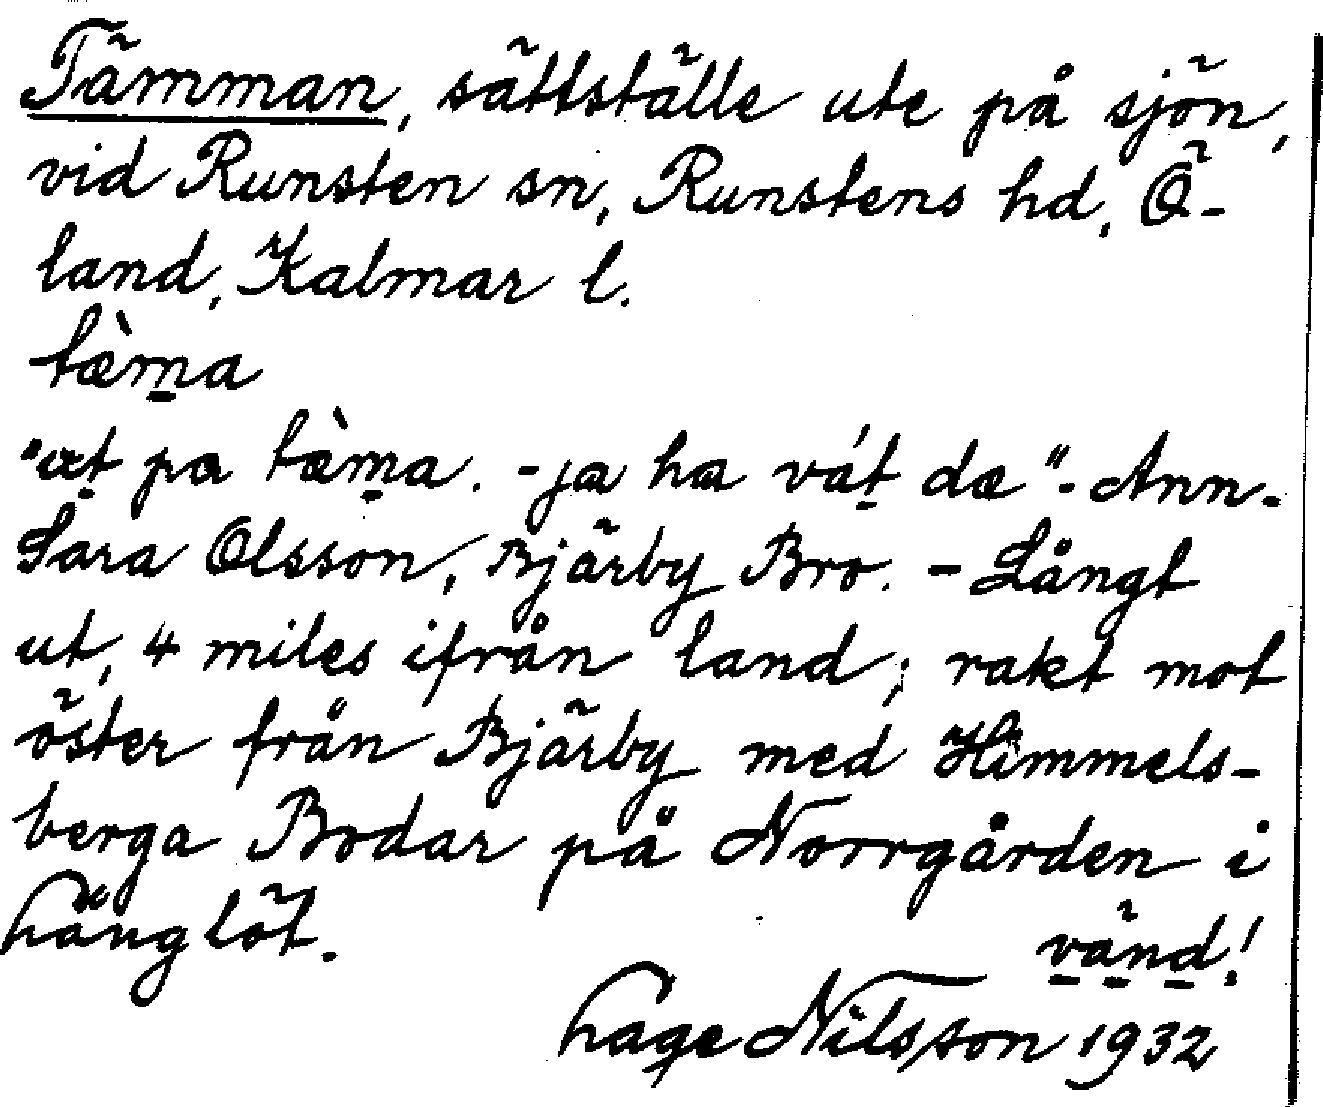 Tämman, sättställe ute på sjön,
vid Runsten sn, Runstens hd, Ö-
land, Kalmar l.
tæ̀m̠a
"ɷt̠ pɷ tæ̀m̠a. - ja ha vát̠ dæ" - Ann-
Sara Olsson, Bjärby Bro. - Långt
ut, 4 miles ifrån land; rakt mot
öster från Bjärby med Himmels-
berga Bodar på Norrgården i
Långlöt. vänd!
Nilsson 1932